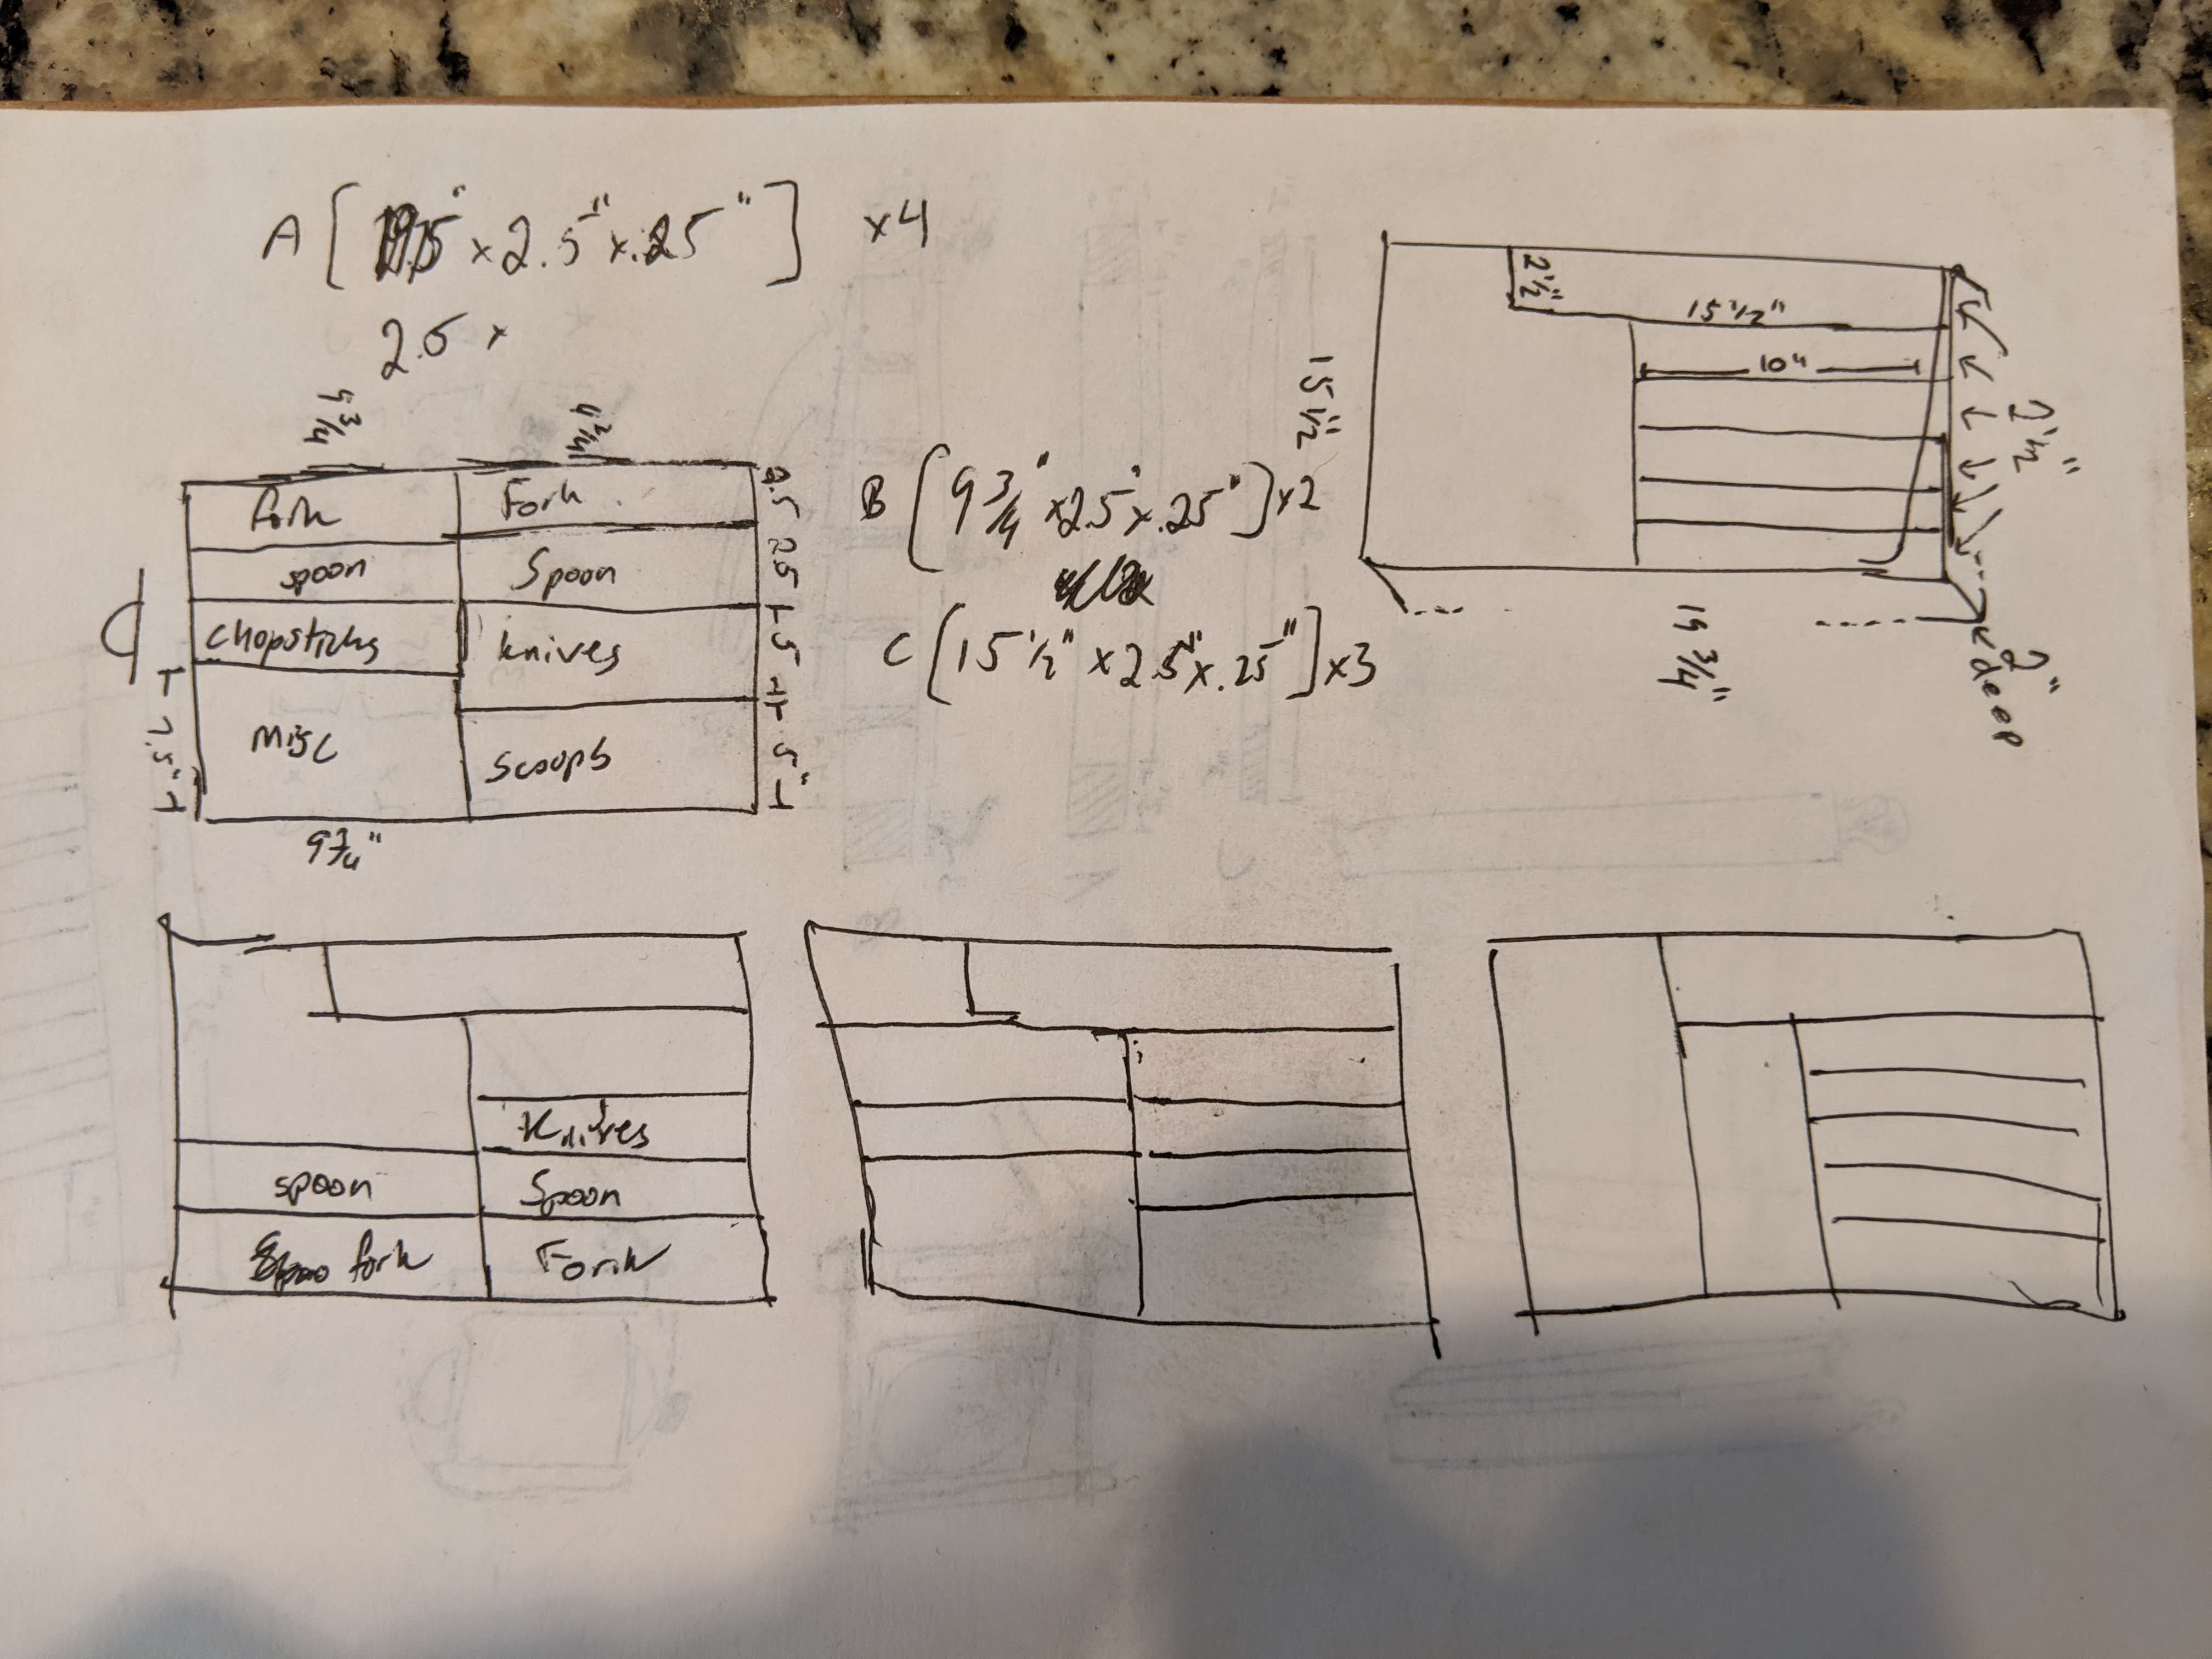 A [ 19.75" x 2.5" x .25" ] x4
2.5 x
9 3/4
9 3/4
fork
Fork
2.5
spoon
Spoon
2.5
chopsticks
knives
5
misc
scoops
7.5"
5"
9 3/4"
B [ 9 3/4" x 2.5" x .25" ] x2
C [ 15 1/2" x 2.5" x .25" ] x3
2 1/2"
15 1/2"
10"
15 1/2"
2 1/2"
19 3/4"
2"
deep
Knives
spoon
Spoon
fork
Fork